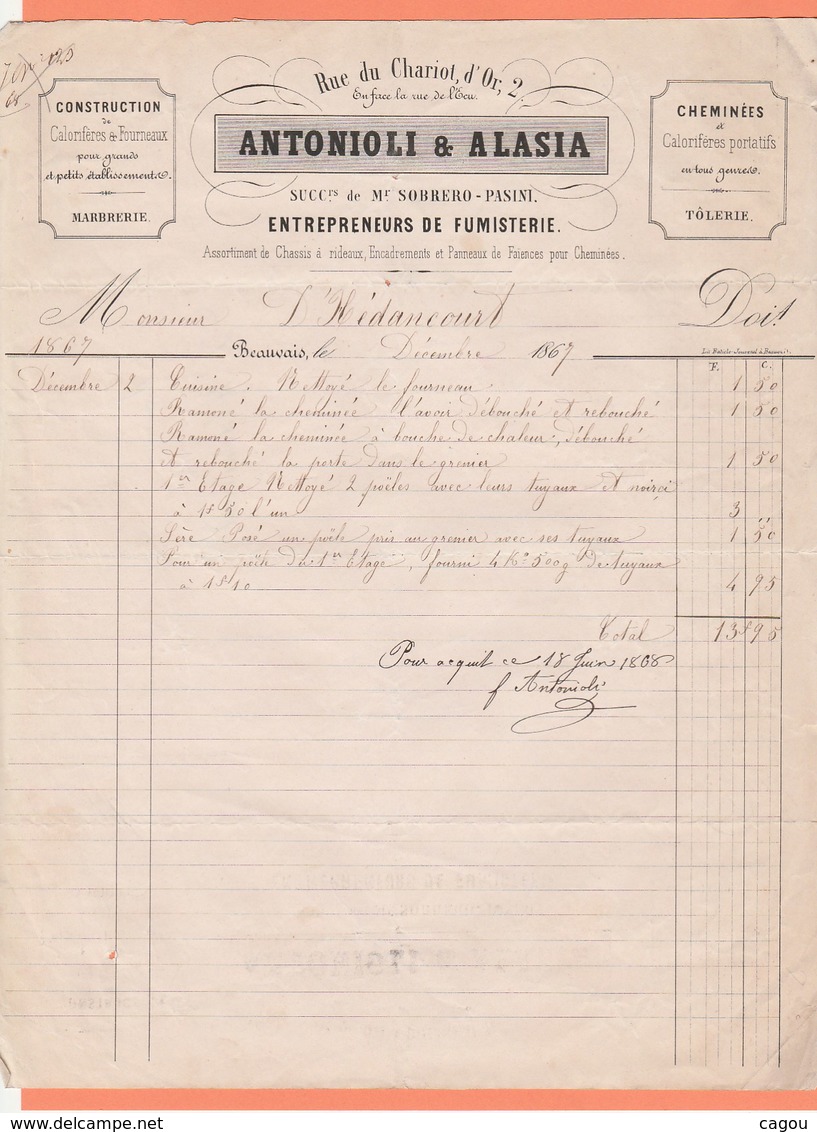 Rue du Chariot, d'Or, 2.
En face la rue de l'Ecu.
CONSTRUCTION
de
Calorifères & Fourneaux
pour grands
et petits établissements.
MARBRERIE.
ANTONIOLI & ALASIA
SUCC.rs de Mr SOBRERO-PASINI.
ENTREPRENEURS DE FUMISTERIE.
Assortiment de Chassis à rideaux, Encadrements et Panneaux de Faiences pour Cheminées.
CHEMINÉES
et
Calorifères portatifs
en tous genres.
TÔLERIE.
Monsieur D'Hédancourt Doit
1867 Beauvais, le Décembre 1867
F. C.
Décembre 2 Cuisine. Nettoyé le fourneau 1 50
Ramoné la cheminée l'avoir débouché et rebouché 1 50
Ramoné la cheminée à bouche de chaleur, débouché
et rebouché la porte dans le grenier 1 50
1er Etage Nettoyé 2 poëles avec leurs tuyaux et noirçi
à 1f 50 l'un 3 "
Posé un poële pris au grenier avec ses tuyaux 1 50
Pour un poële du 1er Etage, fourni 4 Ko 500g de tuyaux
à 1f10 4 95
Total 13f95
Pour acquit ce 18 Juin 1868
f Antonioli
delcampe.net
cagou